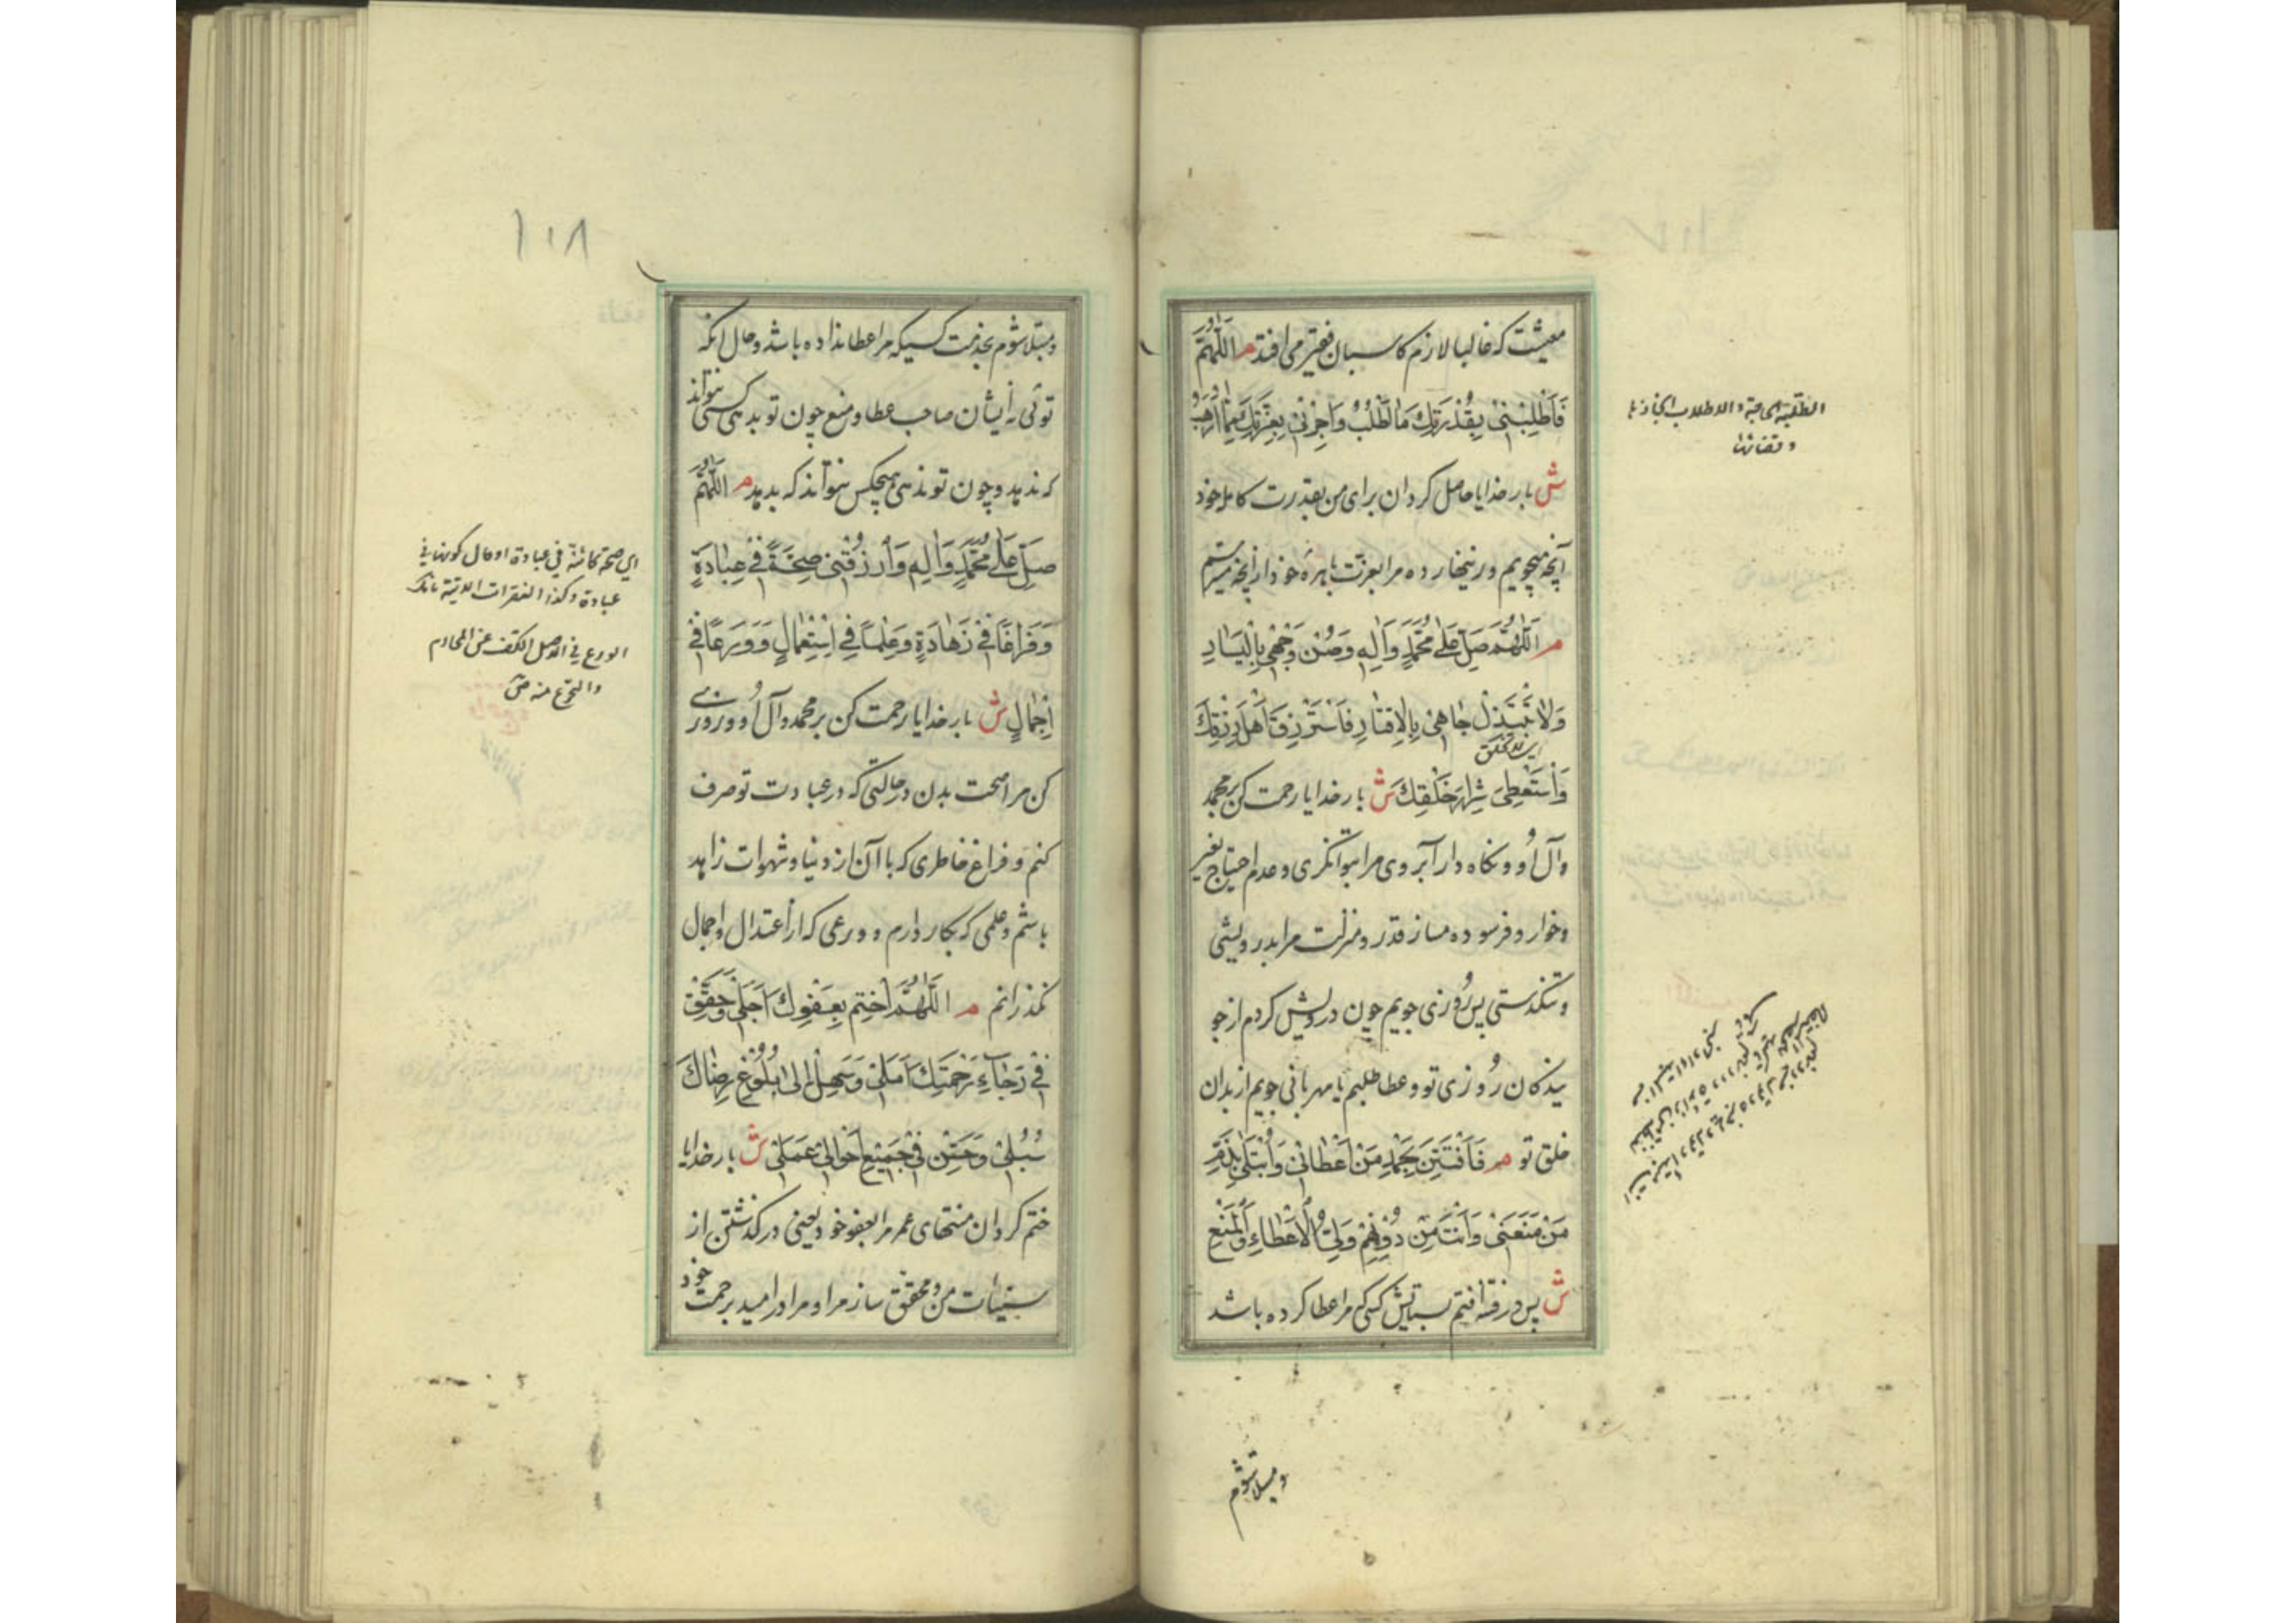 معیشت که غالبا لازم کاسبان فقیر می افتد م اَللّٰهُمَّ
فَاَطْلِبْنی بِقُدْرَتِكَ مٰا اَطْلُبُ وَ اَجِرْنی بِعِزَّتِكَ مِمّٰا اَرْهَبُ
ش بار خدایا حاصل کردان برای من بقدرت کامل خود
آنچه میجویم و زینهار ده مرا بعزت باهرهٔ خود از آنچه میترسم
م اَللّٰهُمَّ صَلِّ عَلٰی مُحَمَّدٍ وَ اٰلِهِ وَ صُنْ وَجْهی بِالْیَسٰارِ
وَ لاٰ تَبْتَذِلْ جٰاهی بِالاِقْتٰارِ فَاَسْتَرْزِقَ اَهْلَ رِزْقِكَ
وَ اَسْتَعْطِیَ شِرٰارَ خَلْقِكَ ش بار خدایا رحمت کن بر محمد
و آل اُو و نکاه دار آبروی مرا بتوانکری و عدم احتیاج بغیر
و خوار و فرسوده مساز قدر و منزلت مرا بدرویشی
و تنکدستی پس رُوزی جویم چون درویش کردم از جو
یندکان رُوزی تو و عطا طلبم یا مهربانی جویم از بدان
خلق تو م فَاَفْتَتِنَ بِحَمْدِ مَنْ اَعْطٰانی وَ اُبْتَلٰی بِذَمِّ
مَنْ مَنَعَنی وَ اَنْتَ مِنْ دُوْنِهِمْ وَلِیُّ الْاِعْطٰاءِ وَ الْمَنْعِ
ش پس در فتنه افتم بستایش کسی که مرا عطا کرده باشد
و مبتلا شوم
الطلبة الحاجة و الاطلاب انجازها
و قضائها
١٠٨
و مبتلا شوم بمذمت کسیکه مرا عطا نداده باشد و حال انکه
توئی نه ایشان صاحب عطا و منع چون تو بدهی کسی نتواند
که ندهد و چون تو ندهی هیچکس نتواند که بدهد م اَللّٰهُمَّ
صَلِّ عَلٰی مُحَمَّدٍ وَ اٰلِهِ وَ ارْزُقْنی صِحَّةً فی عِبٰادَةٍ
وَ فَرٰاغًا فی زَهٰادَةٍ وَ عِلْمًا فِی اسْتِعْمٰالٍ وَ وَرَعًا فی
اِجْمٰالٍ ش بار خدایا رحمت کن بر محمد و آل اُو و روزی
کن مرا صحت بدن در حالتی که در عبادت تو صرف
کنم و فراغ خاطری که با آن از دنیا و شهوات زاهد
باشم و علمی که بکار دارم و ورعی که از اعتدال و اجمال
نکذرانم م اَللّٰهُمَّ اخْتِمْ بِعَفْوِكَ اَجَلی وَ حَقِّقْ
فی رَجٰاءِ رَحْمَتِكَ اَمَلی وَ سَهِّلْ اِلٰی بُلُوْغِ رِضٰاكَ
سُبُلی وَ حَسِّنْ فی جَمیْعِ اَحْوٰالی عَمَلی ش بار خدایا
ختم کردان منتهای عمر مرا بعفو خود یعنی در کذشتن از
سیئات من و محقق ساز مرا و مراد را امید برحمت خود
ای صحة کائنة فی عبادة او حال کونها فی
عبادة و کذا الفقرات الاتیة
الورع فی الاصل الکف عن المحارم
و التحرج منه